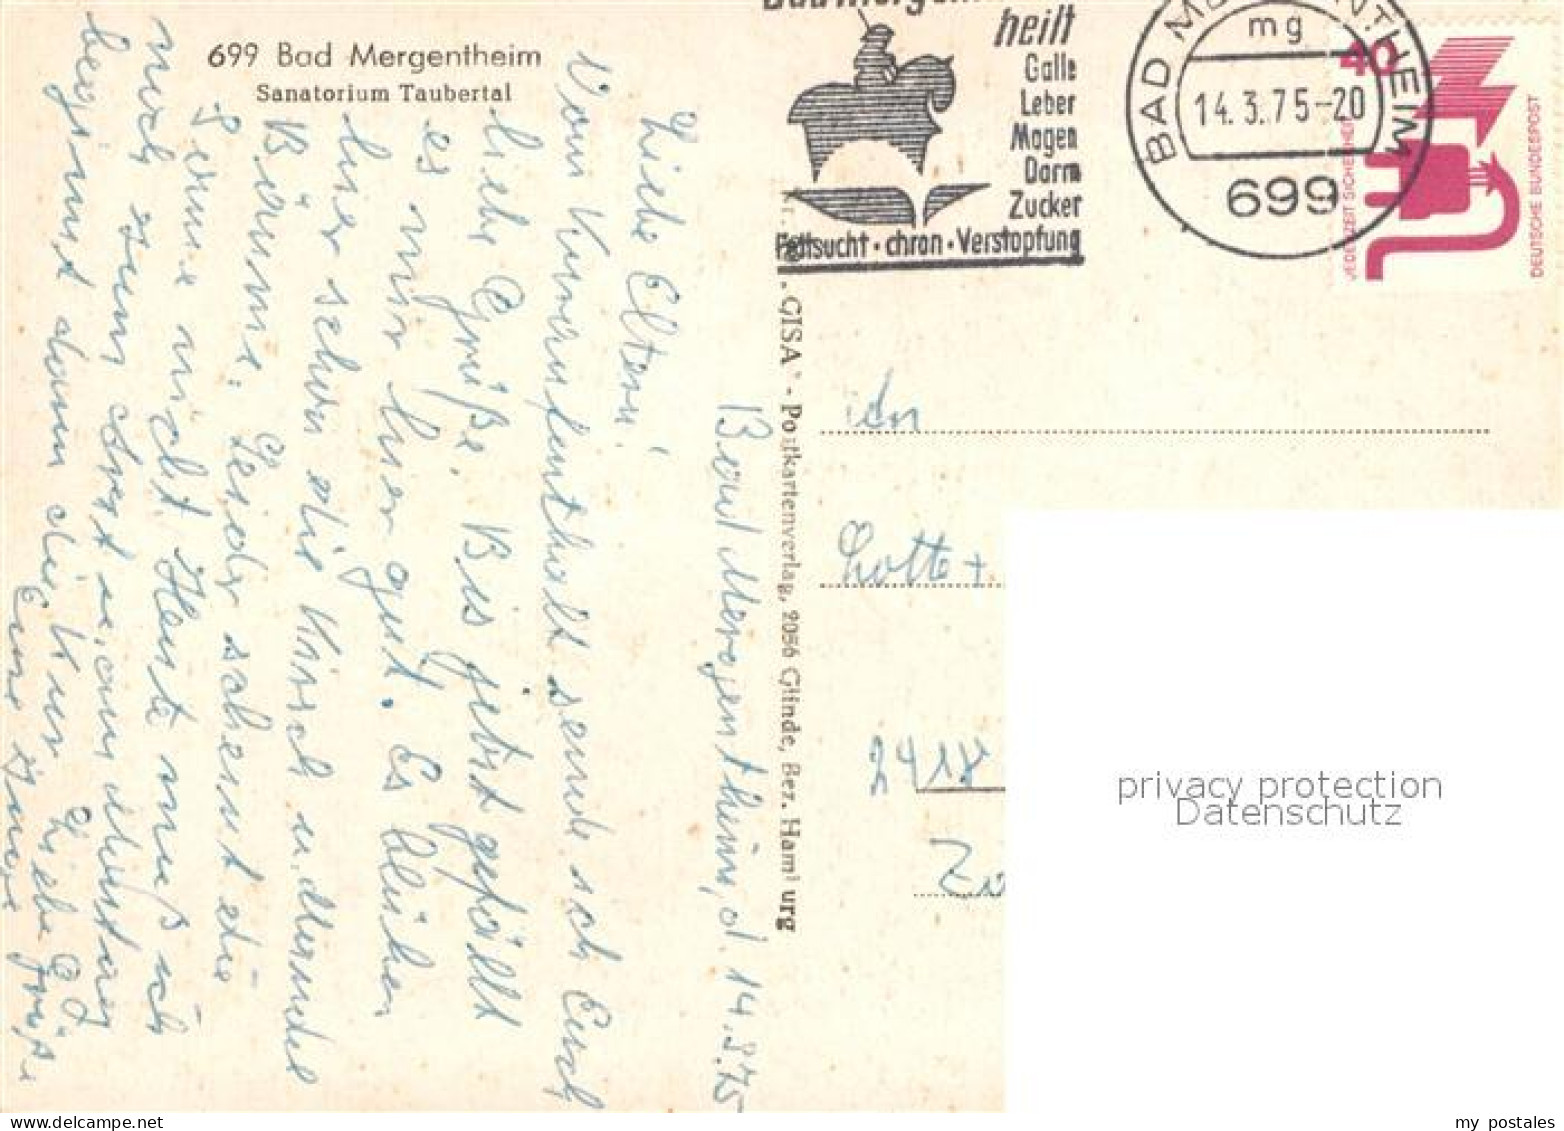 699 Bad Mergentheim
Sanatorium Taubertal
Bad Mergentheim, d. 14.3.75
Liebe Eltern!
Vom Kuraufenthalt sende ich Euch
liebe Grüße. Bis jetzt gefällt
es mir hier gut. Es blühen
hier schon die Kirsch u. Mandel
Bäume. Leider scheint die
Sonne nicht. Heute muß ich
noch zum Arzt u. am Montag
beginnt dann die Kur. Liebe Grüße
Eure
heilt
Galle
Leber
Magen
Darm
Zucker
Fettsucht · chron · Verstopfung
BAD MERGENTHEIM
mg
14. 3. 75-20
699
40
JEDERZEIT SICHERHEIT
DEUTSCHE BUNDESPOST
„GISA“ - Postkartenverlag, 2056 Glinde, Bez. Hamburg
An
Lotte +
2418
privacy protection
Datenschutz
my postales
delcampe.net